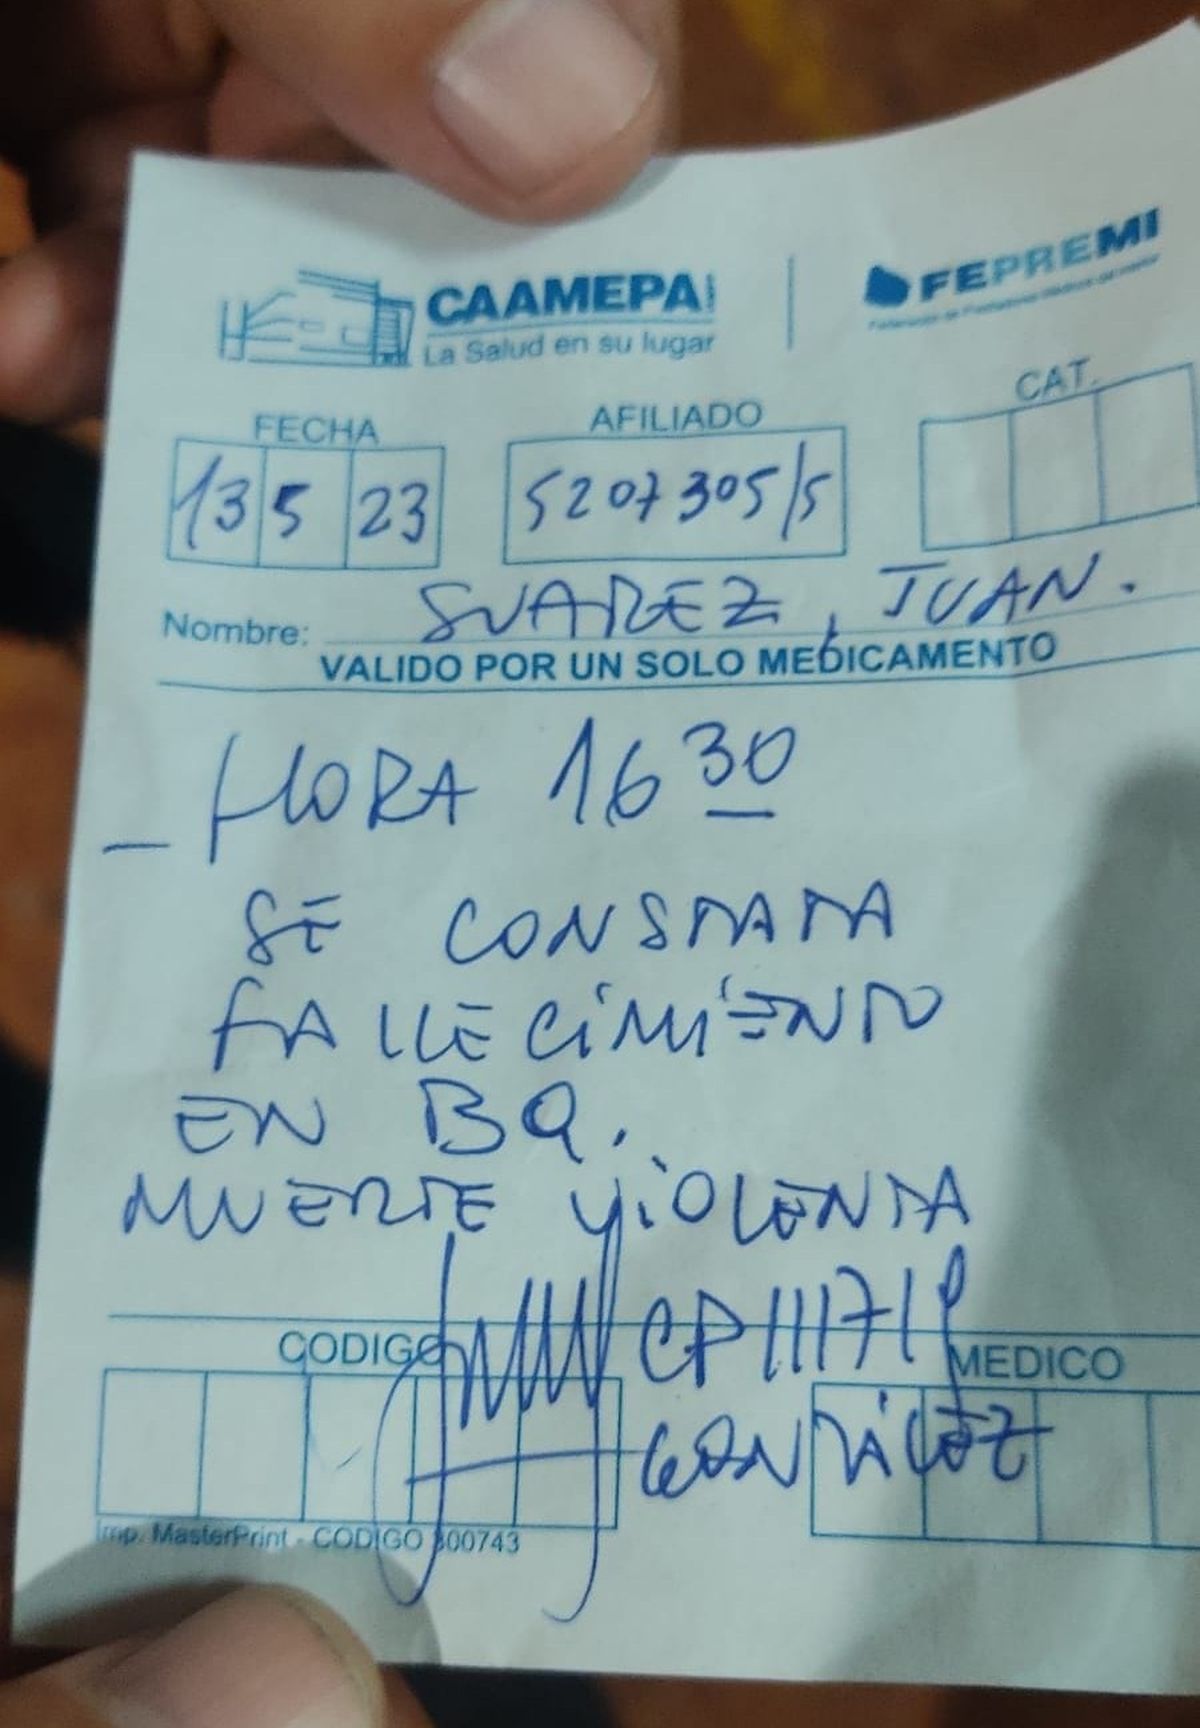 CAAMEPA
La Salud en su lugar
FEPREMI
FECHA
AFILIADO
CAT.
13 5 23
5207305/5
Nombre: SUAREZ, JUAN.
VALIDO POR UN SOLO MEDICAMENTO
_ HORA 16 30
SE CONSTATA
FALLECIMIENTO
EN BQ.
MUERTE VIOLENTA
CP 111719
CODIGO
MEDICO
Imp. MasterPrint - CODIGO 300743